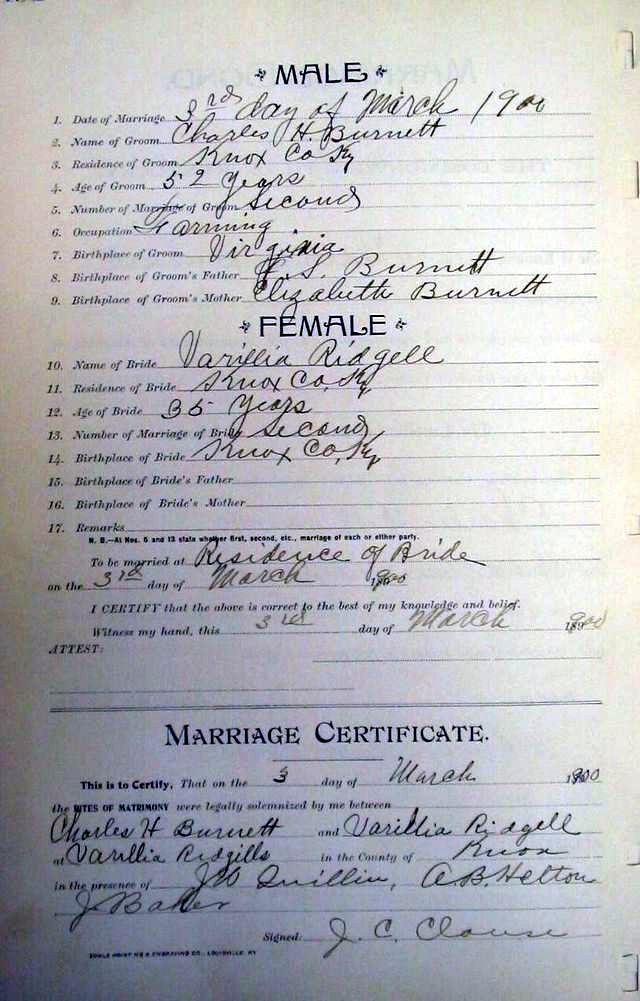 MALE
1. Date of Marriage 3rd day of March 1900
2. Name of Groom Charles H. Burnett
3. Residence of Groom Knox Co Ky
4. Age of Groom 52 Years
5. Number of Marriage of Groom Second
6. Occupation Farming
7. Birthplace of Groom Virginia
8. Birthplace of Groom's Father S. Burnett
9. Birthplace of Groom's Mother Elizabeth Burnett
FEMALE
10. Name of Bride Varillia Ridgell
11. Residence of Bride Knox Co, Ky
12. Age of Bride 35 Years
13. Number of Marriage of Bride Second
14. Birthplace of Bride Knox Co, Ky
15. Birthplace of Bride's Father
16. Birthplace of Bride's Mother
17. Remarks
N. B.—At Nos. 5 and 13 state whether first, second, etc., marriage of each or either party.
To be married at Residence of Bride
on the 3rd day of March 1900
I CERTIFY that the above is correct to the best of my knowledge and belief.
Witness my hand, this 3rd day of March 1900
ATTEST:
MARRIAGE CERTIFICATE.
This is to Certify, That on the 3 day of March 1900
the RITES OF MATRIMONY were legally solemnized by me between
Charles H Burnett and Varillia Ridgell
at Varillia Ridgills in the County of Knox
in the presence of J W Quillin, A. B. Helton
J Baker
Signed: J. C. Clouse
PRINTING & ENGRAVING CO., LOUISVILLE, KY